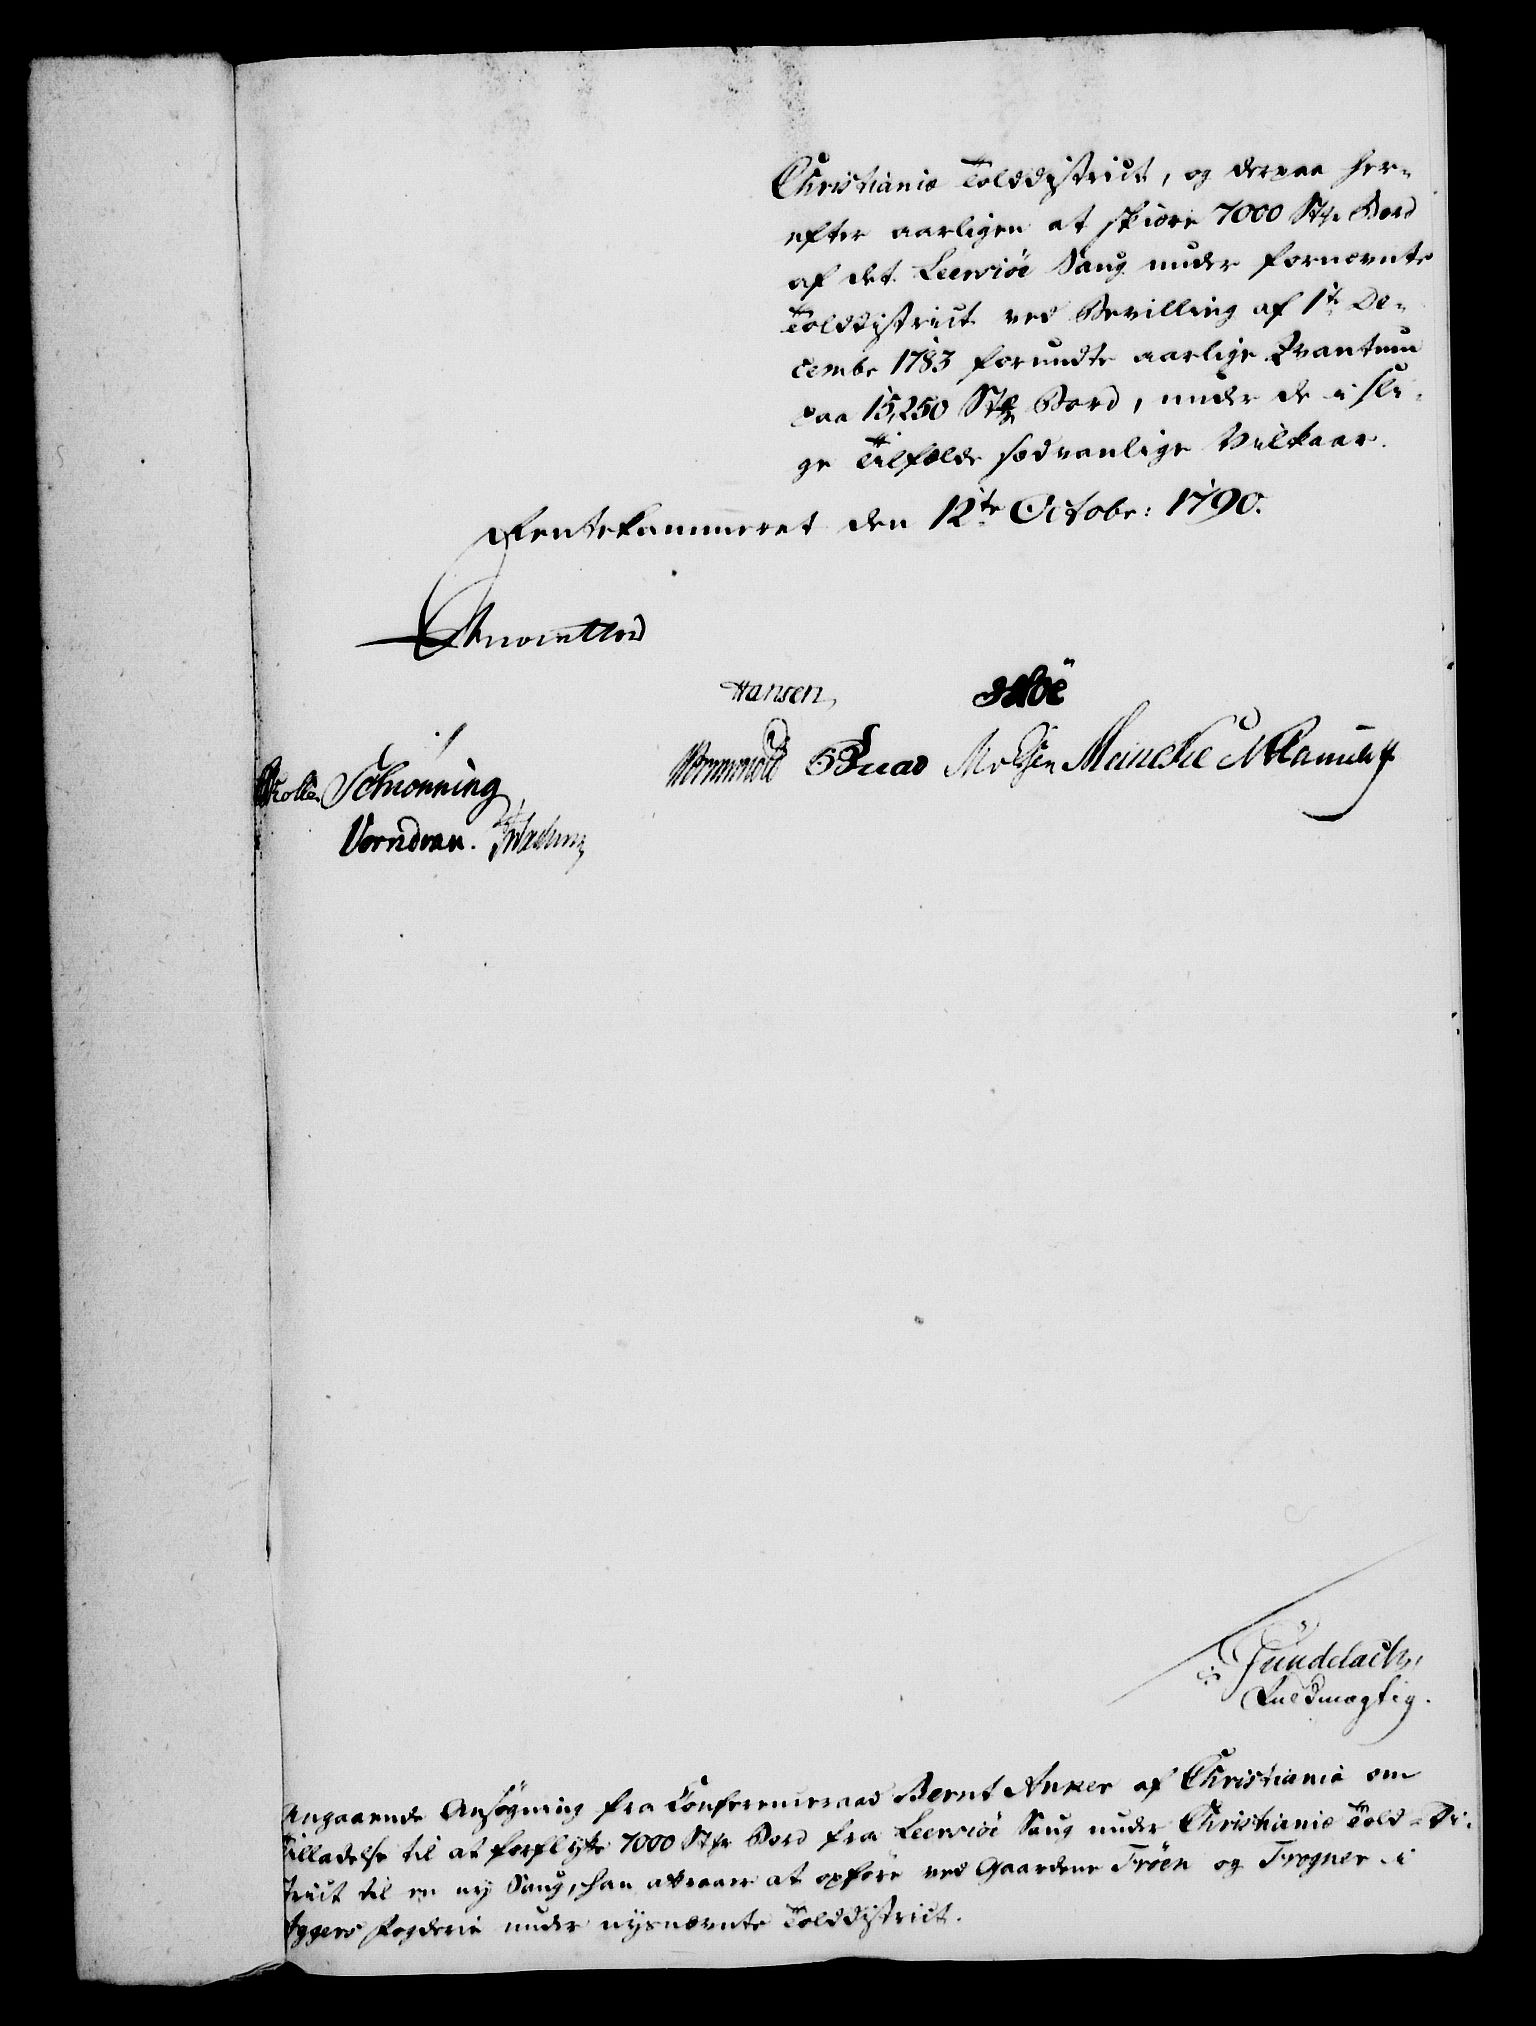 Christianiæ Tolddistrict, og derpaa her-
efter aarligen at skiære 7000 Stkr Bord
af det Leersiöe Saug under fornevnte
Tolddistrict ved Bevilling af 1te De-
cembr 1783 forundte aarlige Qvantum
paa 15,250 Stkr Bord, under de i sli-
ge Tilfælde sædvanlige Vilkaar.
Rentekammeret den 12te Octobr: 1790.
Hansen
Schiönning
Meincke
Vorndran.
Gundelach,
Fuldmægtig.
Angaaende Ansögning fra Conferenceraad Bernt Anker af Christiania om
Tilladelse til at forflytte 7000 Stkr Bord fra Leersiöe Saug under Christianiæ Told-Di-
strict til en ny Saug, han attraaer at opföre ved Gaardene Fröen og Frogner i
Aggers Fogderie under nysnævnte Tolddistrict.